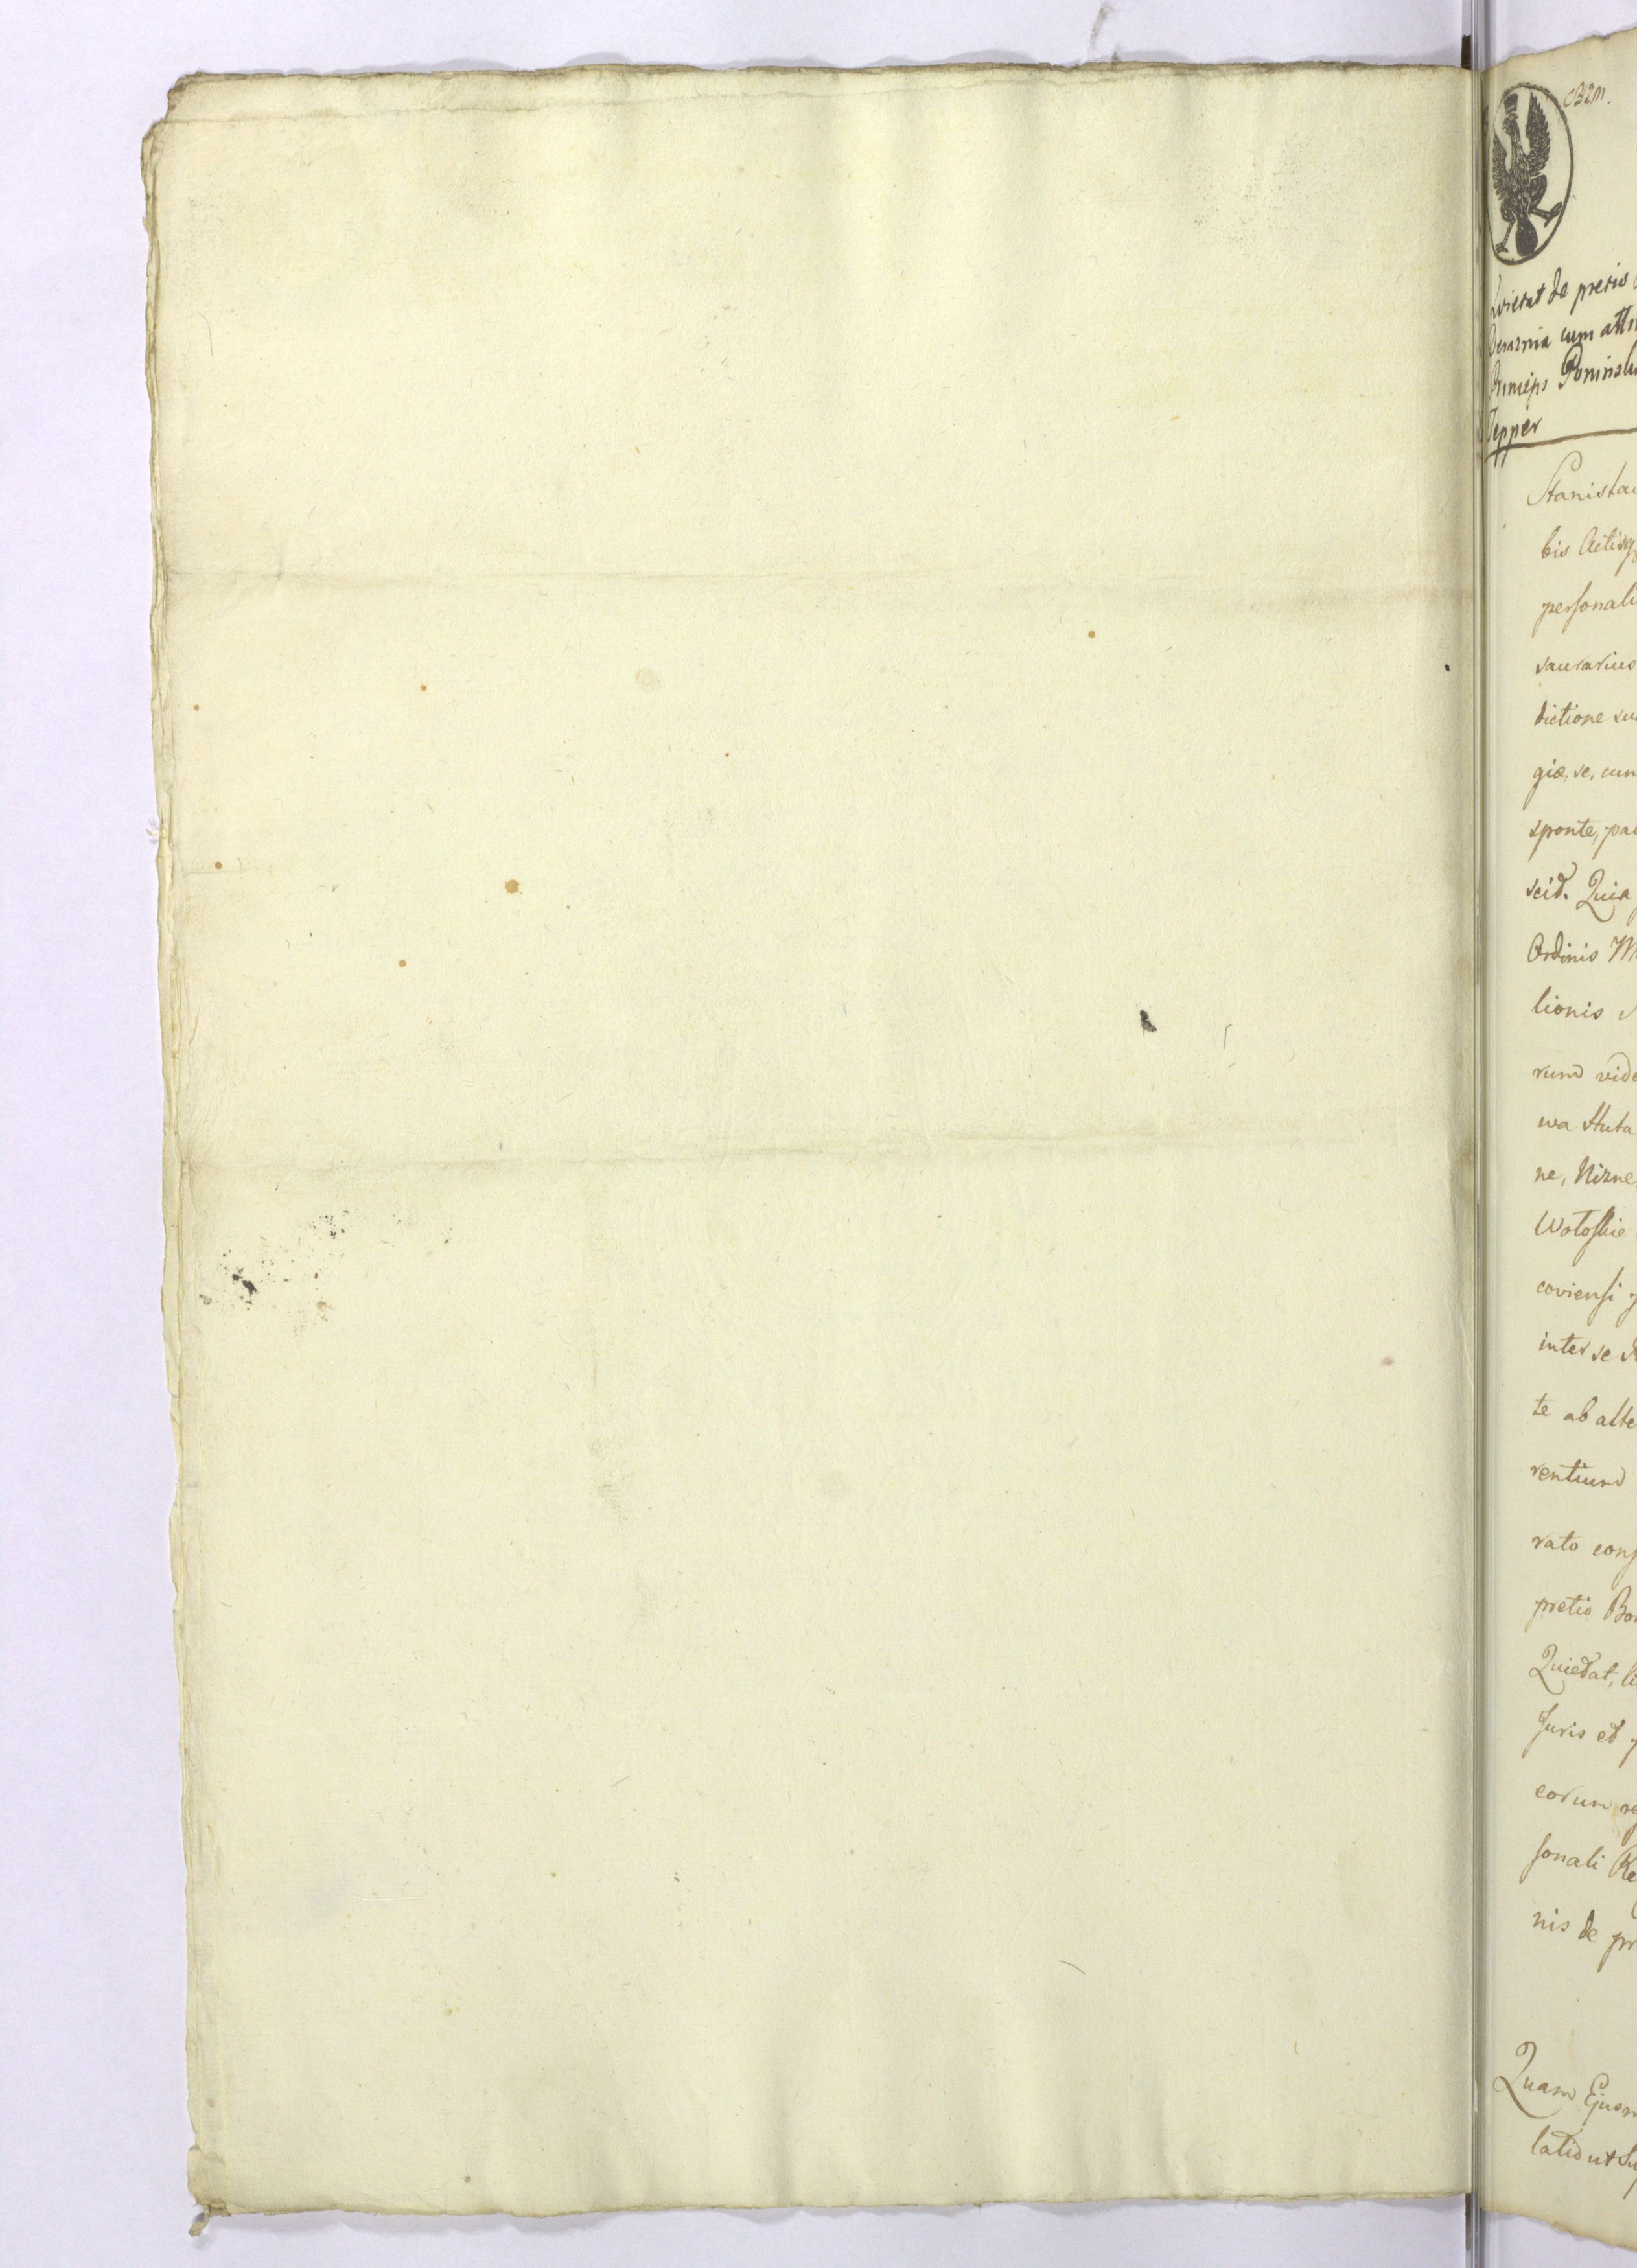 Quietat de pretio
cum att
Princeps Poninsk
Tepper
Stanisla
bis Actisq
personali
saurarius
dictione su
giæ, se, cum
sponte, pa
scid. Quia
Ordinis M
lionis
rum vide
wa Huta
ne, Nizne
Wołoskie
coviensi
inter se
te ab alte
rentium
rato conf
pretio Bo
Quiedat, li
Juris et p
eorum re
sonali Re
nis de pr
Quam Ejusm
latio ut Su